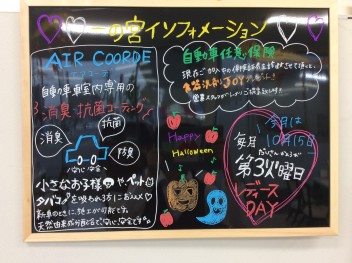 一の宮インフォメーション
AIR COORDE
エアコーデ
自動車車室内専用の
消臭・抗菌コーティング
消臭
抗菌
防臭
安心・安全
小さなお子様やペット
タバコを吸われる方におススメ♡
新車のときに、施工が可能です。
天然由来成分配合で、安心・安全です♪
自動車任意保険
現在ご加入中の保険証券を
Happy
Halloween
今月は
10月15日
毎月
第3火曜日
レディース
DAY